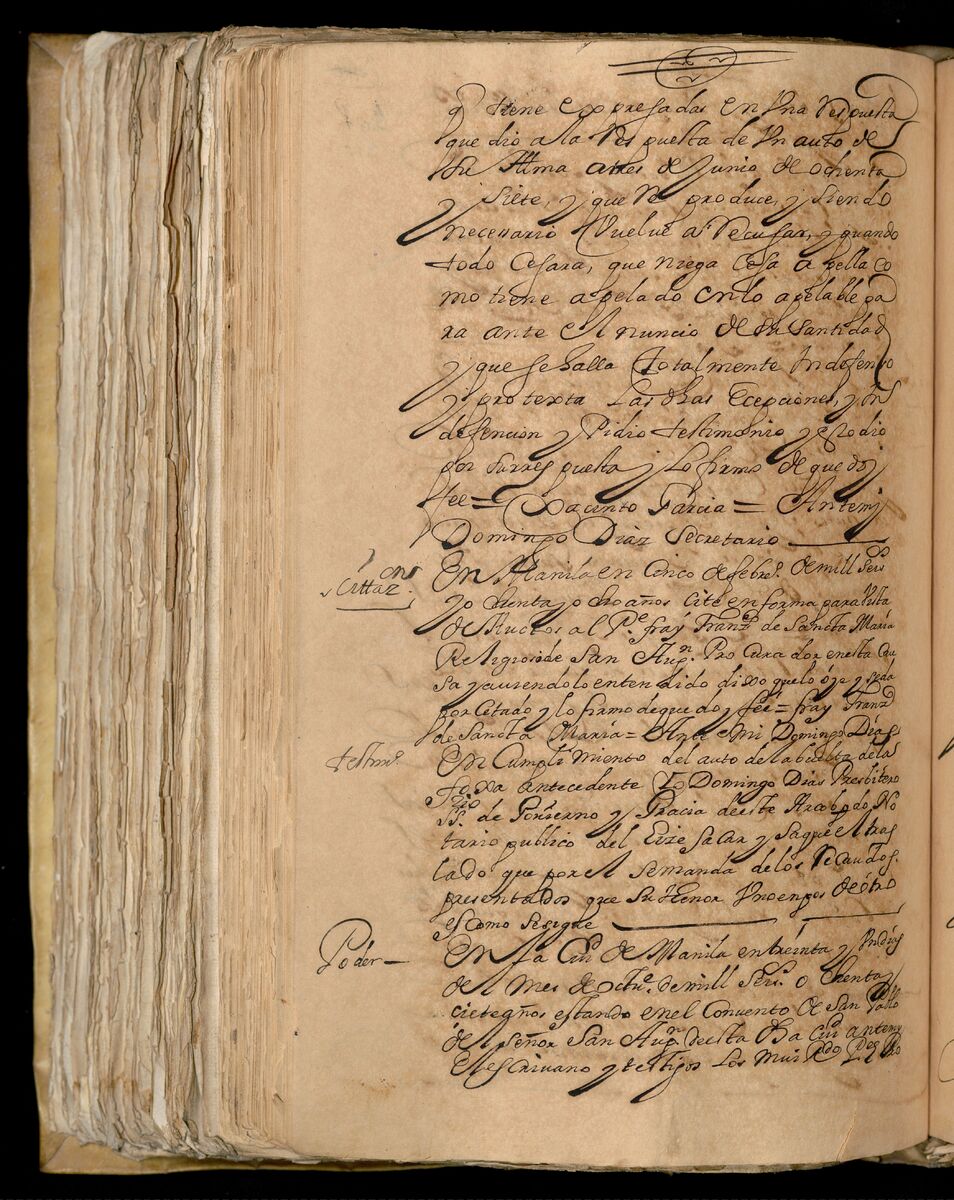 q̄ tiene expresadas en Una Respuesta
que dio a la Respuesta de Vn auto de
Su Illma a tres de Junio de ochenta
y siete, y que Re produce, y siendo
necessario Vuelve a Recusar, y quando
todo Cesara, que niega Cesa apella co
mo tiene apelado en lo apelable pa
ra ante el nuncio de Su Santidad
y que se halla totalmente Indefenso
y protexta las dhas Ecepciones, y in
defencion y Pidio testimonio y esto dio
por su rrespuesta y lo firmo de que doy
fee = Jacinto Garcia = Antemj
Domingo Diaz Secretario
Cittaz.on
En Manila en Cinco de febro. de mill Seisos
y ochenta y ocho años Cite en forma para Vista
de Auctos al Pe. fray Franco. de Sancta Maria
Religioso de San Augn. Procurador en esta Cau
sa y aviendolo entendido dixo que lo oye y se da
por Citado y lo firmo de que doy fee = fray Franco
de Sancta Maria = Ante Mi Domingo Dias
testimo.
En Cumplimiento del auto de la buelta de la
foxa antecedente Yo Domingo Dias Presbitero
Srio. de Govierno y Gracia de este Arcobpdo. No
tario publico del Hize sacar y saque el tras
lado que por el Se manda de los Recaudos
presentados que su thenor Uno en pos de otro
es como se sigue
Poder
En la Ciud de Manila en treinta y Un dias
del mes de octue. de mill Seiss. ochenta y
ciete años estando en el Convento de San Pablo
de el Señor San Augn. de esta dha Ciud ante my
el escrivano y testigos los Mui Rdos Pes Pro